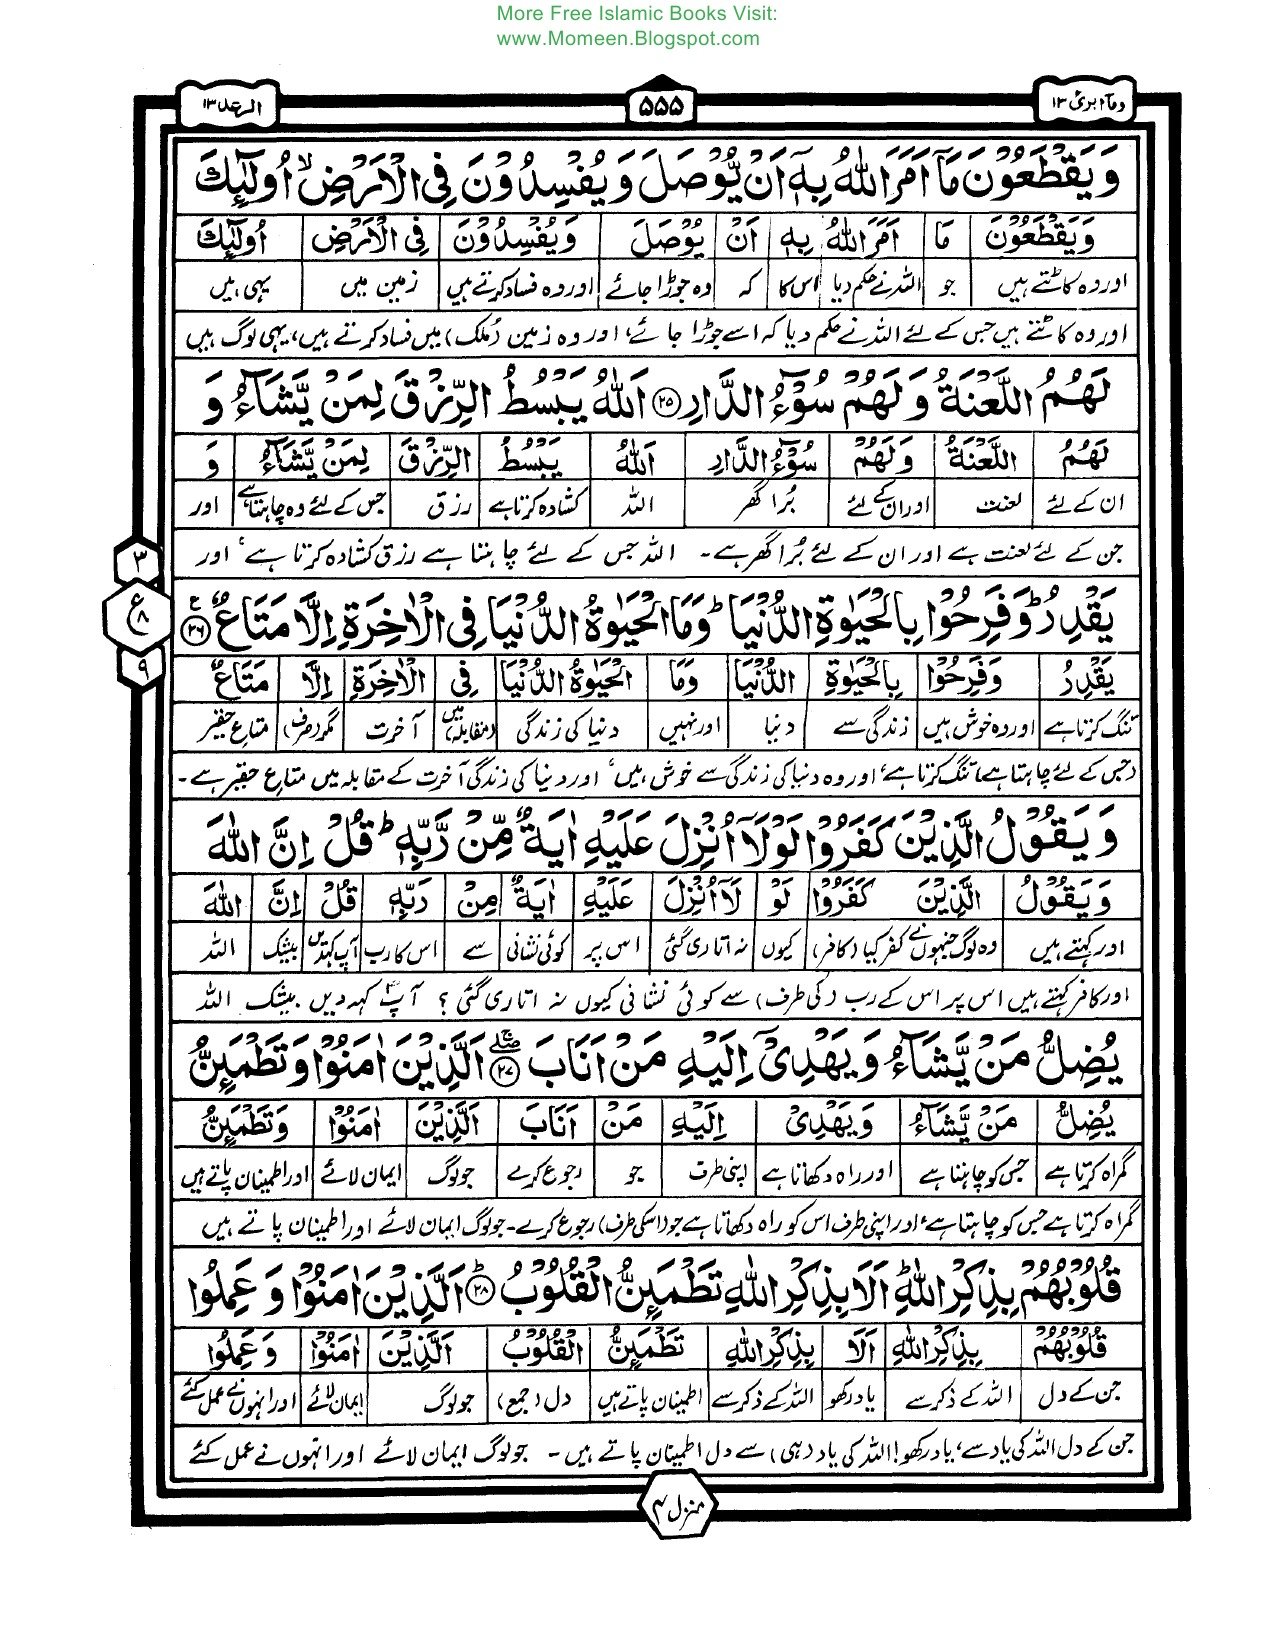 More Free Islamic Books Visit:
www.Momeen.Blogspot.com
ومآ ابرئ ۱۳
۵۵۵
الرعد ۱۳
وَيَقْطَعُوْنَ مَآ اَمَرَ اللّٰهُ بِهٖٓ اَنْ يُّوْصَلَ وَيُفْسِدُوْنَ فِى الْاَرْضِ ۙ اُولٰٓئِكَ
وَيَقْطَعُوْنَ مَا اَمَرَ اللّٰهُ بِهٖ اَنْ يُوْصَلَ وَيُفْسِدُوْنَ فِى الْاَرْضِ اُولٰٓئِكَ
اور وہ کاٹتے ہیں جو اللہ نے حکم دیا اس کا کہ وہ جوڑا جائے اور وہ فساد کرتے ہیں زمین میں یہی ہیں
اور وہ کاٹتے ہیں جس کے لئے اللہ نے حکم دیا کہ اسے جوڑا جائے، اور وہ زمین (ملک) میں فساد کرتے ہیں، یہی لوگ ہیں
لَهُمُ اللَّعْنَةُ وَلَهُمْ سُوْٓءُ الدَّارِ ۲۵ اَللّٰهُ يَبْسُطُ الرِّزْقَ لِمَنْ يَّشَآءُ وَ
لَهُمُ اللَّعْنَةُ وَلَهُمْ سُوْٓءُ الدَّارِ اَللّٰهُ يَبْسُطُ الرِّزْقَ لِمَنْ يَّشَآءُ وَ
ان کے لئے لعنت اور ان کے لئے بُرا گھر اللہ کشادہ کرتا ہے رزق جس کے لئے وہ چاہتا ہے اور
جن کے لئے لعنت ہے اور ان کے لئے بُرا گھر ہے۔ اللہ جس کے لئے چاہتا ہے رزق کشادہ کرتا ہے، اور
۳
ع
۸
۹
يَقْدِرُ ؕ وَفَرِحُوْا بِالْحَيٰوةِ الدُّنْيَا ؕ وَمَا الْحَيٰوةُ الدُّنْيَا فِى الْاٰخِرَةِ اِلَّا مَتَاعٌ ۲۶
يَقْدِرُ وَفَرِحُوْا بِالْحَيٰوةِ الدُّنْيَا وَمَا الْحَيٰوةُ الدُّنْيَا فِى الْاٰخِرَةِ اِلَّا مَتَاعٌ
تنگ کرتا ہے اور وہ خوش ہیں زندگی سے دنیا اور نہیں دنیا کی زندگی (مقابلہ) میں آخرت مگر (صرف) متاع حقیر
(جس کے لئے چاہتا ہے) تنگ کرتا ہے، اور وہ دنیا کی زندگی سے خوش ہیں، اور دنیا کی زندگی آخرت کے مقابلہ میں متاع حقیر ہے۔
وَيَقُوْلُ الَّذِيْنَ كَفَرُوْا لَوْلَآ اُنْزِلَ عَلَيْهِ اٰيَةٌ مِّنْ رَّبِّهٖ ؕ قُلْ اِنَّ اللّٰهَ
وَيَقُوْلُ الَّذِيْنَ كَفَرُوْا لَوْ لَآ اُنْزِلَ عَلَيْهِ اٰيَةٌ مِنْ رَبِّهٖ قُلْ اِنَّ اللّٰهَ
اور کہتے ہیں وہ لوگ جنہوں نے کفر کیا (کافر) کیوں نہ اتاری گئی اس پر کوئی نشانی سے اس کا رب آپ کہدیں بیشک اللہ
اور کافر کہتے ہیں اس پر اس کے رب (کی طرف) سے کوئی نشانی کیوں نہ اتاری گئی؟ آپؐ کہہ دیں بیشک اللہ
يُضِلُّ مَنْ يَّشَآءُ وَيَهْدِىْٓ اِلَيْهِ مَنْ اَنَابَ ۲۷ اَلَّذِيْنَ اٰمَنُوْا وَتَطْمَئِنُّ
يُضِلُّ مَنْ يَّشَآءُ وَيَهْدِىْ اِلَيْهِ مَنْ اَنَابَ اَلَّذِيْنَ اٰمَنُوْا وَتَطْمَئِنُّ
گمراہ کرتا ہے جس کو چاہتا ہے اور راہ دکھاتا ہے اپنی طرف جو رجوع کرے جو لوگ ایمان لائے اور اطمینان پاتے ہیں
گمراہ کرتا ہے جس کو چاہتا ہے، اور اپنی طرف اس کو راہ دکھاتا ہے جو (اسکی طرف) رجوع کرے۔ جو لوگ ایمان لائے اور اطمینان پاتے ہیں
قُلُوْبُهُمْ بِذِكْرِ اللّٰهِ ؕ اَلَا بِذِكْرِ اللّٰهِ تَطْمَئِنُّ الْقُلُوْبُ ۲۸ اَلَّذِيْنَ اٰمَنُوْا وَعَمِلُوا
قُلُوْبُهُمْ بِذِكْرِ اللّٰهِ اَلَا بِذِكْرِ اللّٰهِ تَطْمَئِنُّ الْقُلُوْبُ اَلَّذِيْنَ اٰمَنُوْا وَعَمِلُوا
جن کے دل اللہ کے ذکر سے یاد رکھو اللہ کے ذکر سے اطمینان پاتے ہیں دل (جمع) جو لوگ ایمان لائے اور انہوں نے عمل کئے
جن کے دل اللہ کی یاد سے، یاد رکھو! اللہ کی یاد (ہی) سے دل اطمینان پاتے ہیں۔ جو لوگ ایمان لائے اور انہوں نے عمل کئے
منزل ۳